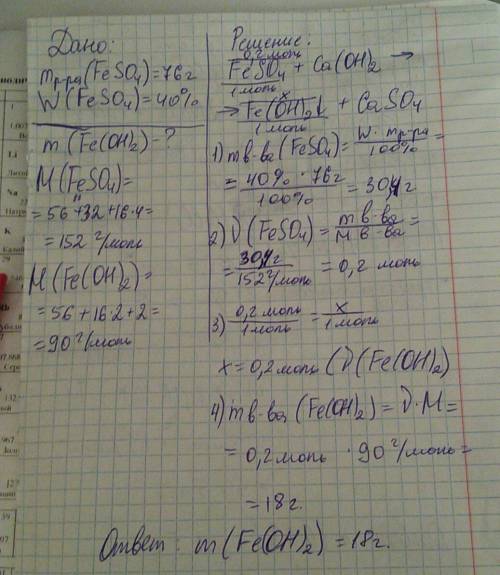 Дано:
mр-ра(FeSO4)=76г
W(FeSO4)=40%
m(Fe(OH)2)-?
M(FeSO4)=
=56+32+16·4=
=152 г/моль
M(Fe(OH)2)=
=56+16·2+2=
=90 г/моль
Решение:
0,2 моль
FeSO4 + Ca(OH)2 →
1 моль
x
→ Fe(OH)2↓ + CaSO4
1 моль
1) m в-ва (FeSO4) = W·mр-ра / 100% =
= 40%·76г / 100% = 30,4 г
2) ν(FeSO4) = m в-ва / M в-ва =
= 30,4г / 152 г/моль = 0,2 моль
3) 0,2 моль / 1 моль = x / 1 моль
x = 0,2 моль (ν(Fe(OH)2)
4) m в-ва (Fe(OH)2) = ν·M =
= 0,2 моль · 90 г/моль =
= 18 г.
Ответ: m(Fe(OH)2) = 18г.